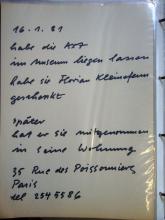 16.1.81
habe die Axt
im Museum liegen lassen
habe sie Florian Kleinefenn
geschenkt
später
hat er sie mitgenommen
in seine Wohnung
35 Rue des Poissonniers
Paris
tel 254 5586